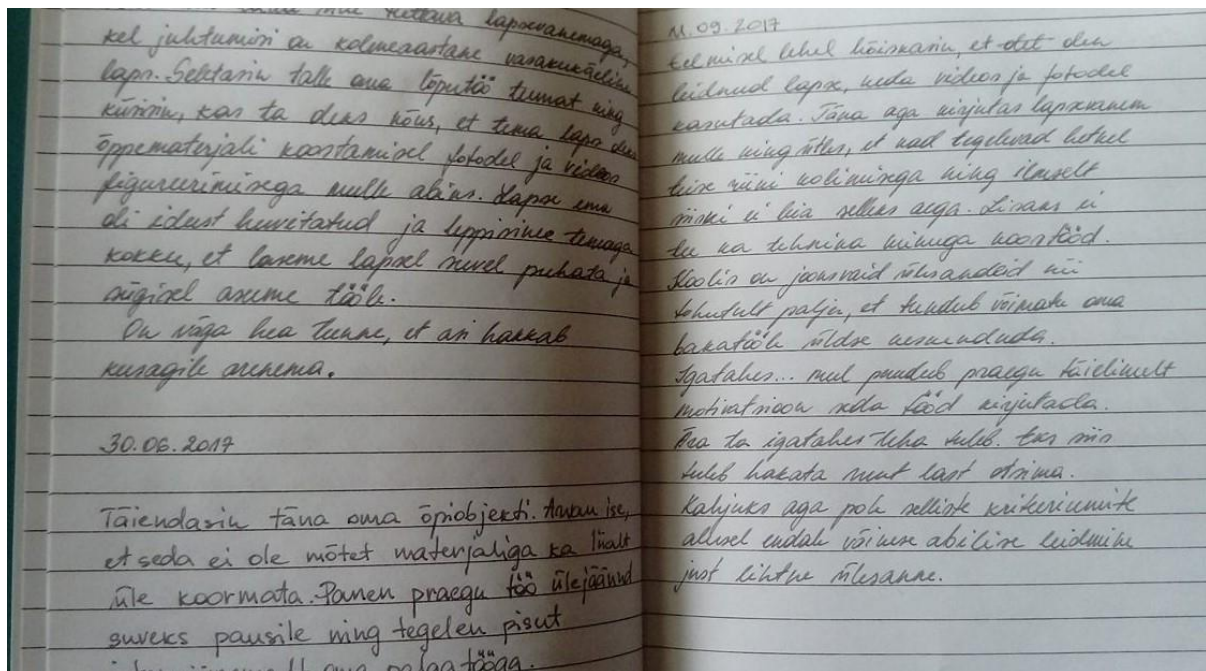 tuttava lapsevanemaga,
kel juhtumisi on kolmeaastane vasakukäeline
laps. Seletasin talle oma lõputöö teemat ning
küsisin, kas ta oleks nõus, et tema laps oleks
õppematerjali koostamisel fotodel ja videos
figureerimisega mulle abiks. Lapse ema
oli idust huvitatud ja leppisime temaga
kokku, et laseme lapsel suvel puhata ja
sügisel asume tööle.
On väga hea tunne, et asi hakkab
kusagile arenema.
30.06.2017
Täiendasin täna oma õpiobjekti. Arvan ise,
et seda ei ole mõtet materjaliga ka liialt
üle koormata. Panen praegu töö ülejäänud
suveks pausile ning tegelen pisut
oma palgatööga.
11.09.2017
Eelmisel lehel hõiskasin, et olen
leidnud lapse, keda videos ja fotodel
kasutada. Täna aga kirjutas lapsevanem
mulle ning ütles, et nad tegelevad hetkel
teise riiki kolimisega ning ilmselt
siiski ei leia selleks aega. Lisaks ei
tee ka tehnika minuga koostööd.
Koolis on jooksvaid ülesandeid nii
tohutult palju, et tundub võimatu oma
bakatööle üldse keskenduda.
Igatahes... mul puudub praegu täielikult
motivatsioon seda tööd kirjutada.
Ära ta igatahes teha tuleb. Eks siis
tuleb hakata uut last otsima.
Kahjuks aga pole selliste kriteeriumite
alusel endale väikese abilise leidmine
just lihtne ülesanne.